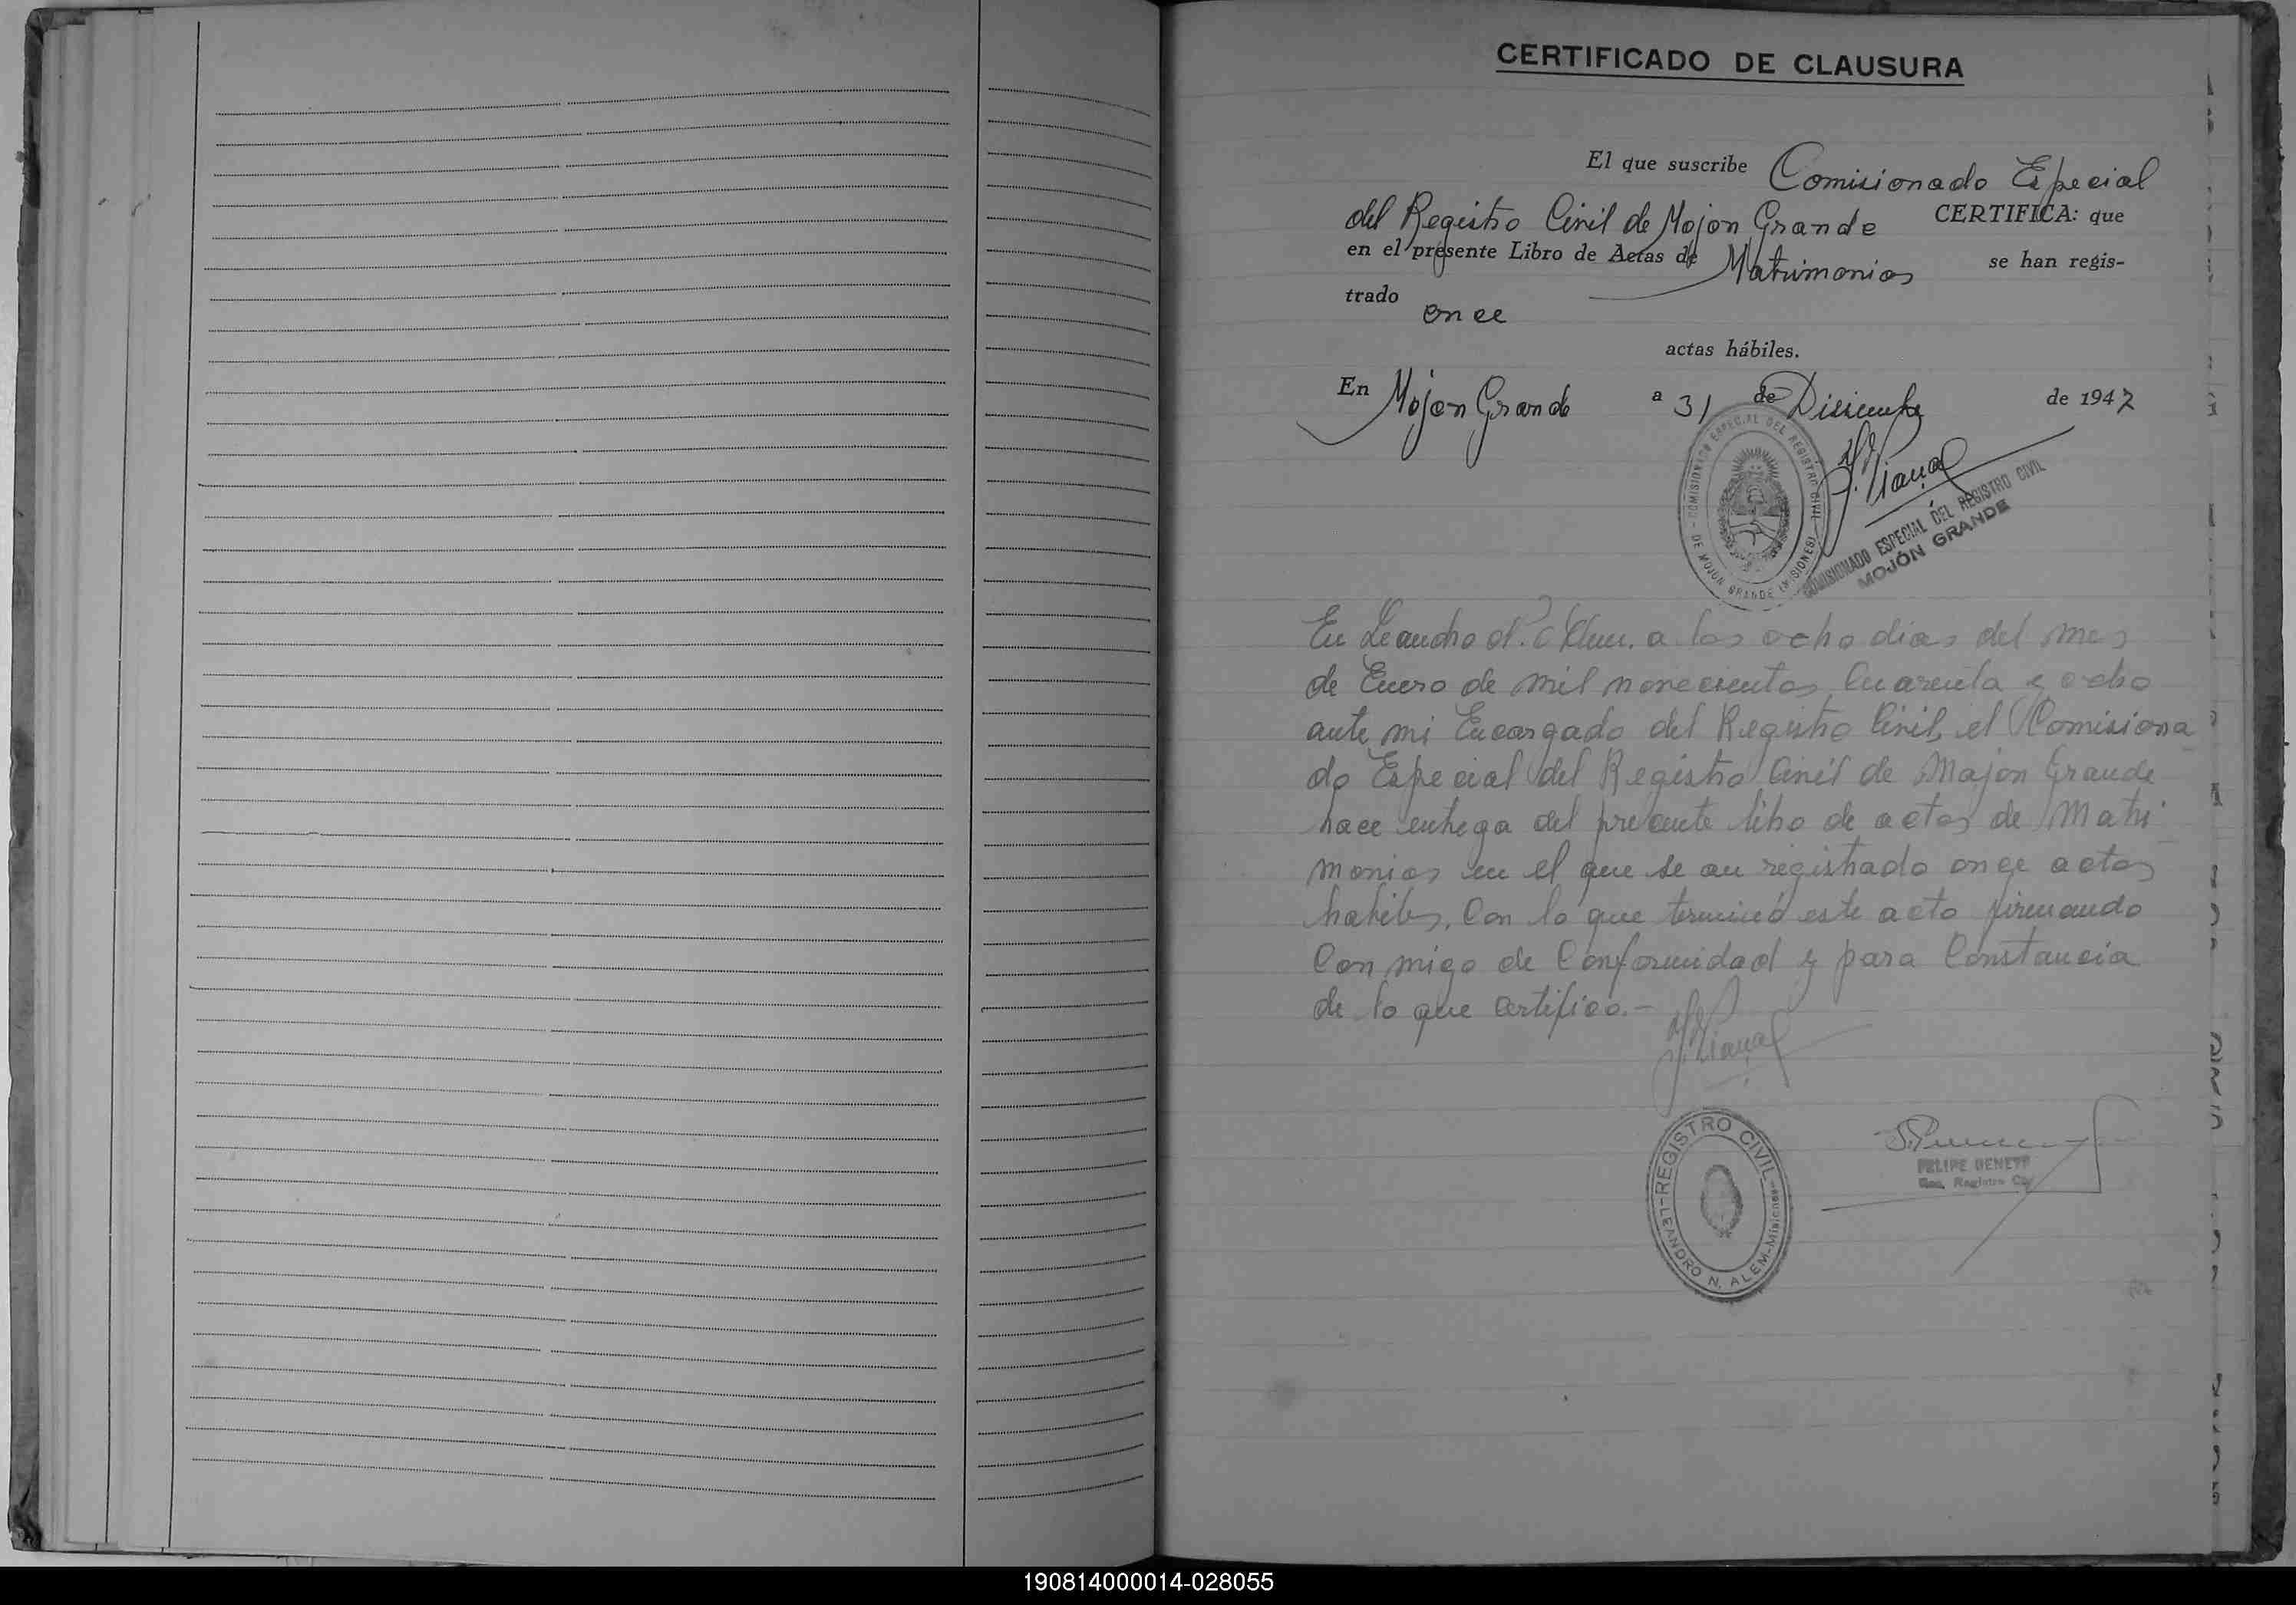 CERTIFICADO DE CLAUSURA
El que suscribe Comisionado Especial
del Registro Civil de Mojon Grande CERTIFICA: que
en el presente Libro de Actas de Matrimonios se han regis-
trado once
actas hábiles.
En Mojon Grande a 31 de Diciembre de 1947
COMISIONADO ESPECIAL DEL REGISTRO CIVIL
DE MOJON GRANDE (MISIONES)
COMISIONADO ESPECIAL DEL REGISTRO CIVIL
MOJÓN GRANDE
En Leandro N. Alem. a los ocho dias del mes
de Enero de mil novecientos Cuarenta y ocho
ante mi Encargado del Registro Civil, el Comisiona
do Especial del Registro Civil de Majon Grande
hace entrega del presente libro de actas de Matri
monios en el que se an registrado once actas
habiles, Con lo que terminó este acto firmando
Con migo de Conformidad y para Constancia
de lo que Certifico.-
REGISTRO CIVIL
LEANDRO N. ALEM-Misiones
FELIPE
Registro
190814000014-028055